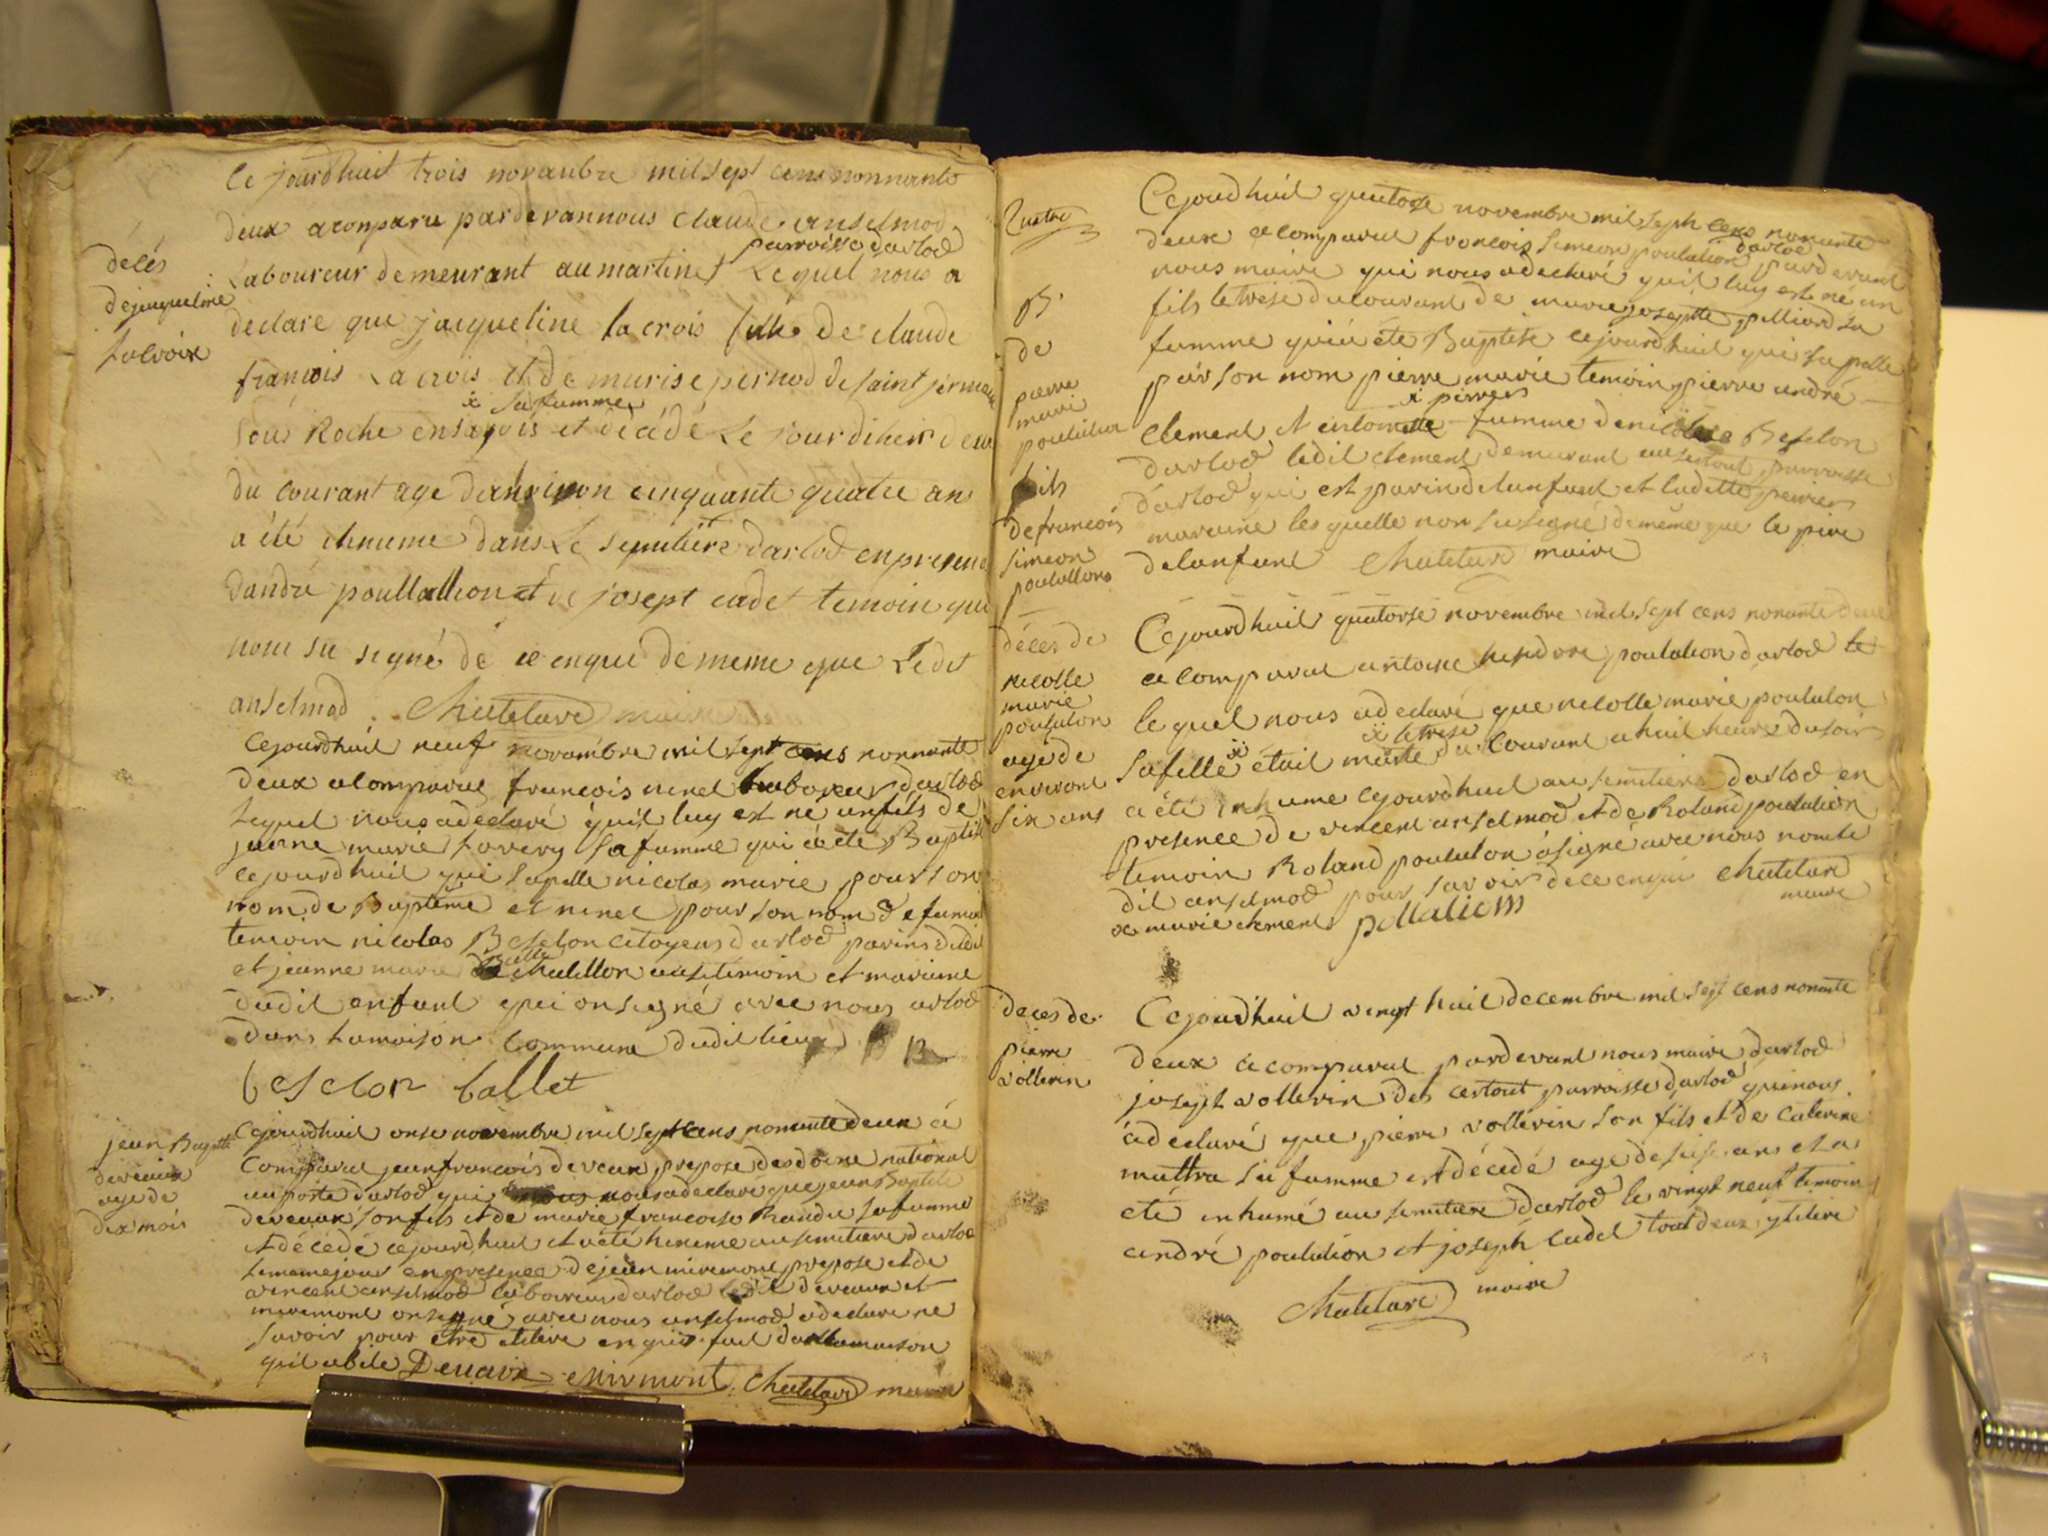 décés
dejaqueline
lacroix
Ce jourdhuit trois novanbre mil sept cens nonnante
deux a conparu pardevannous claude anselmod
parroisse darlod
Laboureur demeurant au martinet Lequel nous a
declare que jacqueline la crois fille de claude
françois La crois et de murise pernod de saint jermain
x sa famme
sous Roche en et décédé Le jour diher deux
du courant age danviron cinquante quatre an
a été dans Le semitiére darlod en presend
dandré poullallion et de josept cadet temoin qui
nom su signé de ce enqui de meme que Ledit
anselmod. Chatelard maire
Cejourdhuit neuf novambre mil sept cens nonnante
deux a comparut francois ninet laboreur darlod
Lequel nous a declaré quil luy est né un fils de
janne marie favery sa famme qui a été Baptisé
cejourdhuit qui sapelle nicolas marie pour son
nom de Baptême et ninet pour son nom de famme
temoin nicolas Beselon citoyens darlod parins dudit
et jeanne marie chatillon ausi temoin et maraine
dudit enfant qui on signé avec nous arlod
dans la maison commune dudit lieux
beselon ballet
jean Baptiste
deveaux
age de
dix mois
Cejourdhuit onse novembre mil sept cens nonante deux à
comparut jean francois deveux prepose des doine national
au poste darlod qui nous a declaré que jean Baptiste
deveaux son fils et de marie francoise Randu sa famme
et décédé cejourdhuit et a été hinume au semitiere darlod
le meme jour en presence de jean miremont prepose et de
vincent anselmod laboureur darlod ledit deveaux et
miremont on signé avec nous anselmod a declare ne
savoir pour etre enqui fait dans la maison
quil abite Devaux mirmont Chatelard maire
B.
de
pierre
mari
poulalion
fils
de francois
simeon
poulallion
Cejourdhuit quatorse novembre mil seph cens nonante
darlod
deux a comparut francois simeon poulalion pardevant
nous maire qui nous a declaré quil luy est né un
fils le trese du courant de marie josephte pilliard sa
famme qui a été Baptisé cejourdhuit qui sapelle
par son nom pierre marie temoin pierre andré
x perrier
clement et antoinette famme de nicolas Beselon
darlod ledit clement demeurant au sertout parroisse
darlod qui est parin de lanfant et ladette perrier
maraine les quelle non su signé de même que le pere
de lanfant Chatelard maire
décés de
nicolle
marie
poulalon
agé de
environt
six ans
Cejourdhuit quatorse novembre mil sept cens nonante deux
a comparut antoine poulalion darlod le
le quel nous a declaré que nicolle marie poulalon
x le trese
sa fille x était morte du courant a huit heure du soir
a été inhume cejourdhuit au semitiere darlod en
presence de vincent anselmod et de Roland poulalion
temoin Roland poulalon a signé avec nous nomle
dit anselmod pour savoir de ce enqui Chatelard
maire
x marie clement pollaliom
deces de
pierre
vollerin
Cejourdhuit vingt huit decembre mil sept cens nonante
deux a comparut pardevant nous maire darlod
joseph vollerin des certout parroisse darlod qui nous
a declaré que pierre vollerin son fils et de caterine
mattra sa famme et décédé age de seise ans et a
eté inhumé au semitiere darlod le vingt neuf temoin
andré poulalion et joseph cadet tout deux ylitere
Chatelard maire